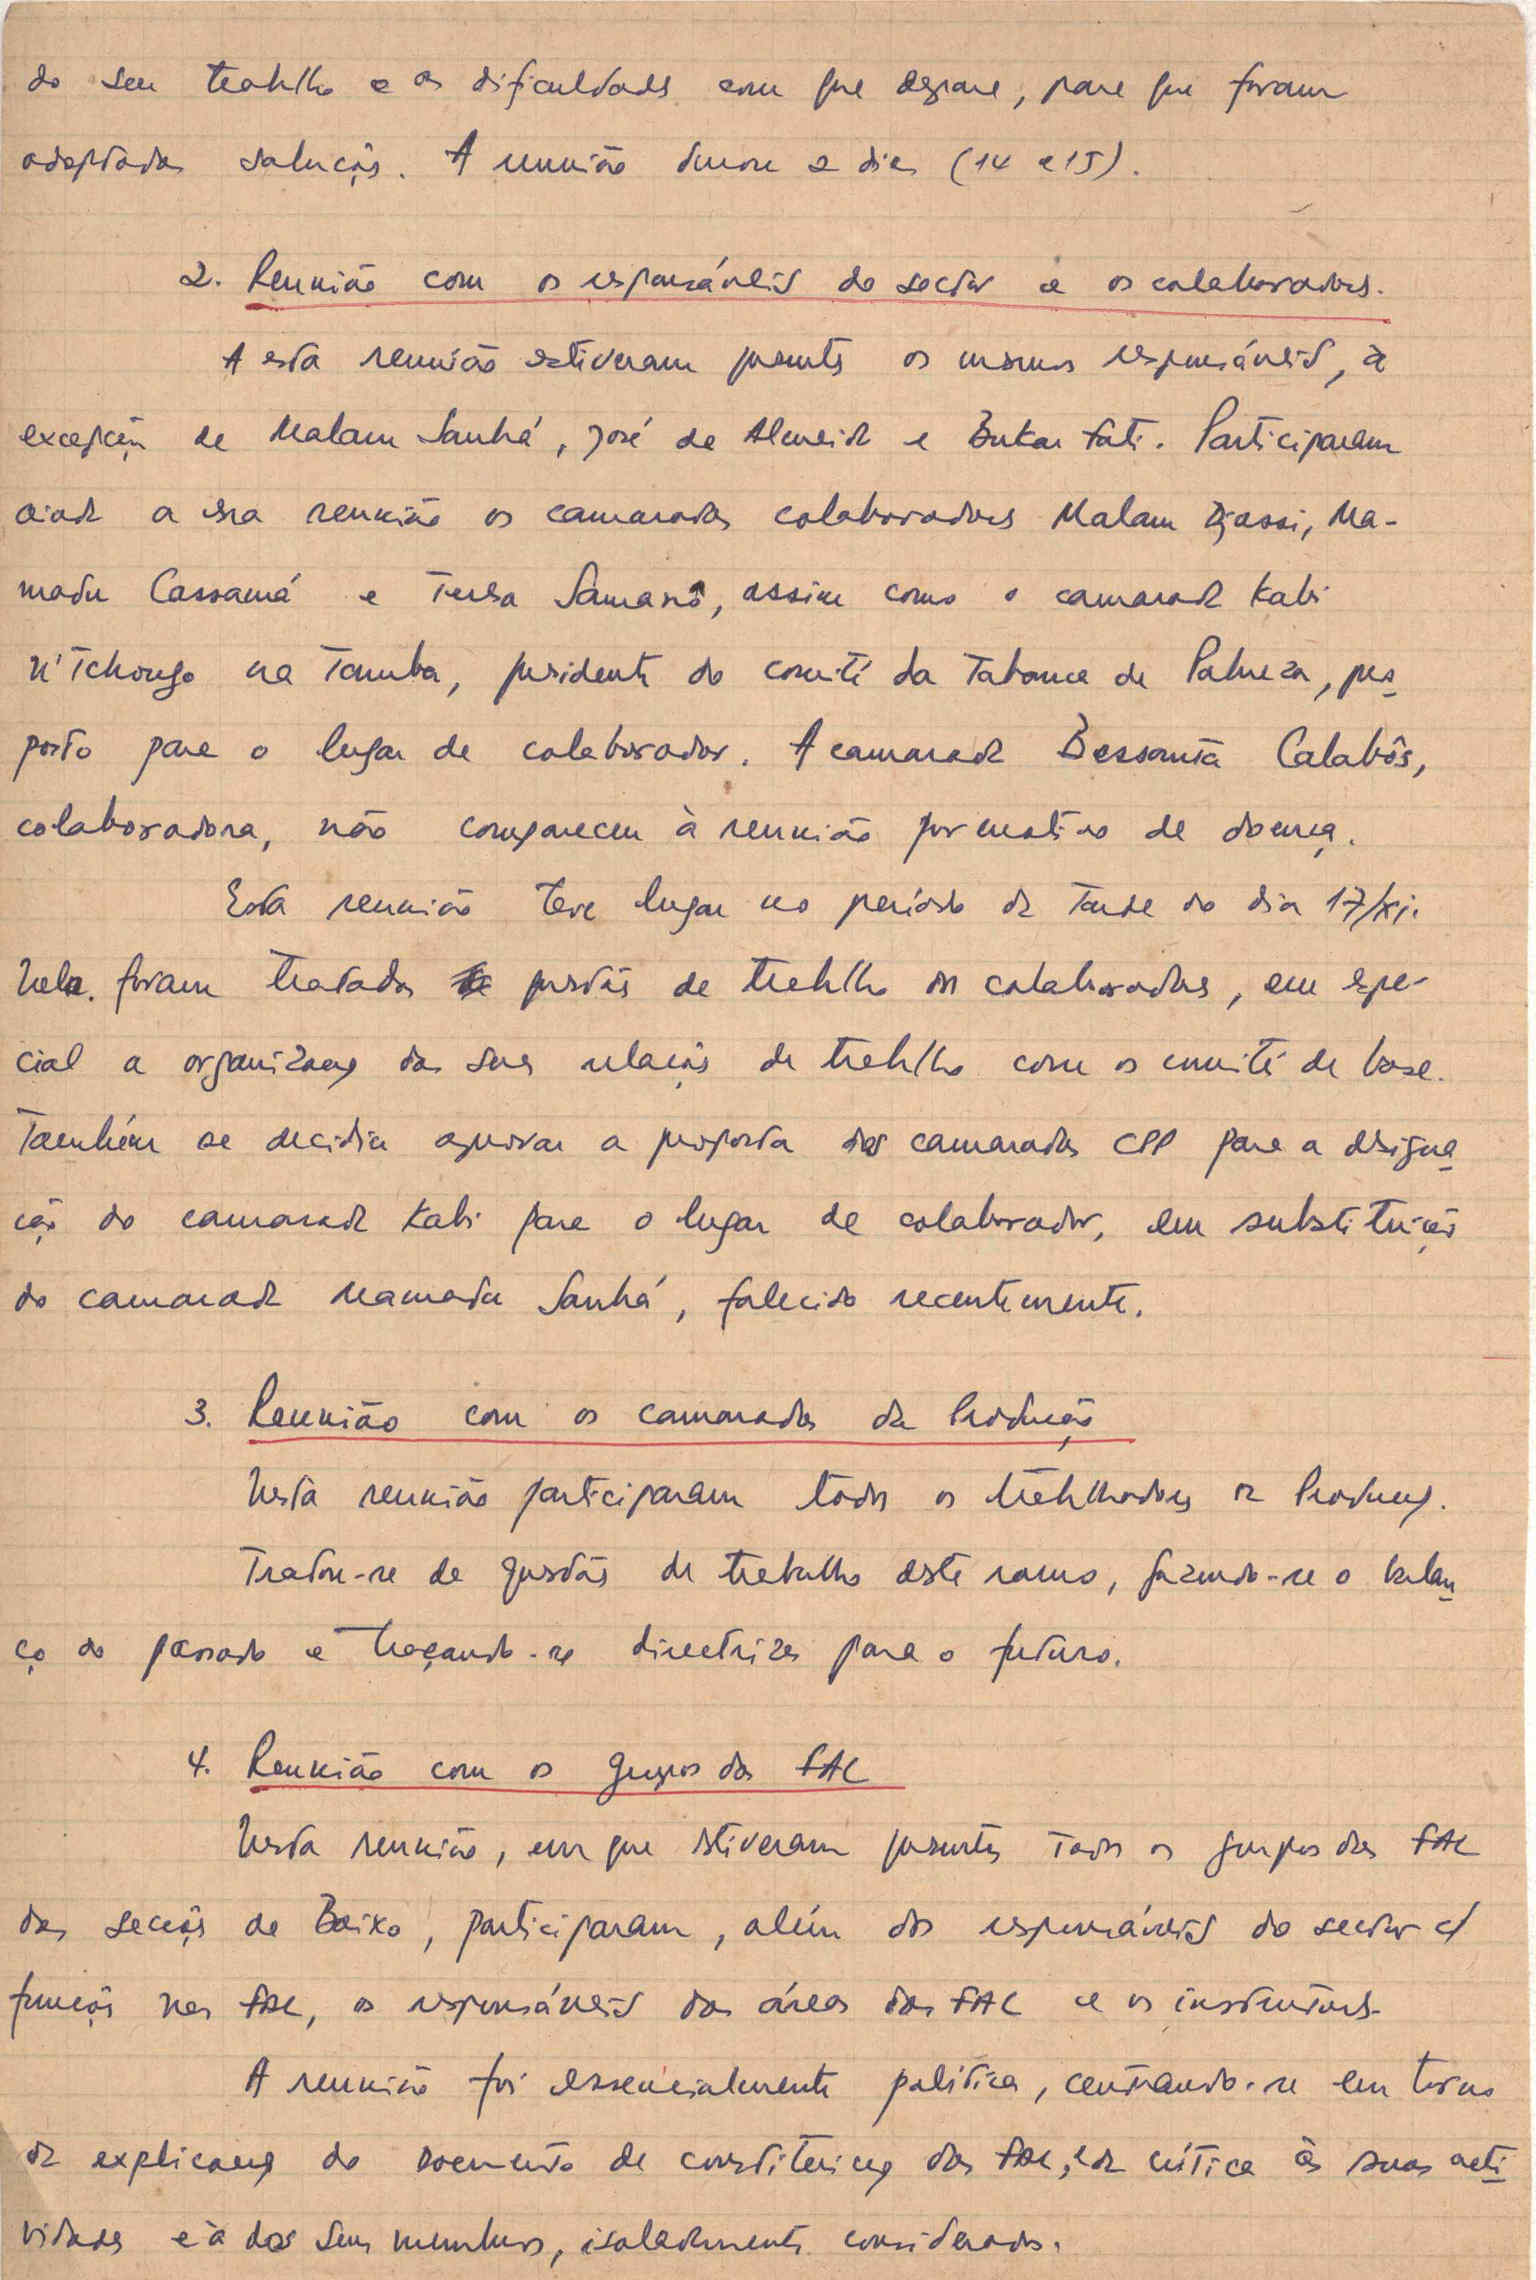 do seu trabalho e as dificuldades com que depara, para que foram
adoptadas soluções. A reunião durou 2 dias (14 e 15).
2. Reunião com os responsáveis do sector e os colaboradores.
A esta reunião estiveram presentes os mesmos responsáveis, à
excepção de Malam Sanhá, José de Almeida e Bukar Fati. Participaram
ainda a essa reunião os camaradas colaboradores Malam Djassi, Ma-
madu Cassamá e Tersa Samanô, assim como o camarada Kabi
N'Tchongo na Tamba, presidente do comité da Tabanca de Palmeza, pro-
posto para o lugar de colaborador. A camarada Bessantã Calabôs,
colaboradora, não compareceu à reunião por motivo de doença.
Esta reunião teve lugar no período da tarde do dia 17/XI.
Nela foram tratadas questões de trabalho dos colaboradores, em espe-
cial a organização das suas relações de trabalho com os comités de base.
Também se decidiu aprovar a proposta dos camaradas CPP para a designa-
ção do camarada Kabi para o lugar de colaborador, em substituição
do camarada Mamadu Sanhá, falecido recentemente.
3. Reunião com os camaradas da Produção
Nesta reunião participaram todos os trabalhadores da Produção.
Tratou-se de questões de trabalho deste ramo, fazendo-se o balan-
ço do passado e traçando-se directrizes para o futuro.
4. Reunião com os grupos das FAL
Nesta reunião, em que estiveram presentes todos os grupos das FAL
das secções de Baixo, participaram, além dos responsáveis do sector c/
funções nas FAL, os responsáveis das áreas das FAL e os instrutores.
A reunião foi essencialmente política, centrando-se em torno
da explicação do documento de constituição das FAL, e da crítica às suas acti-
vidades e à dos seus membros, isoladamente considerados.